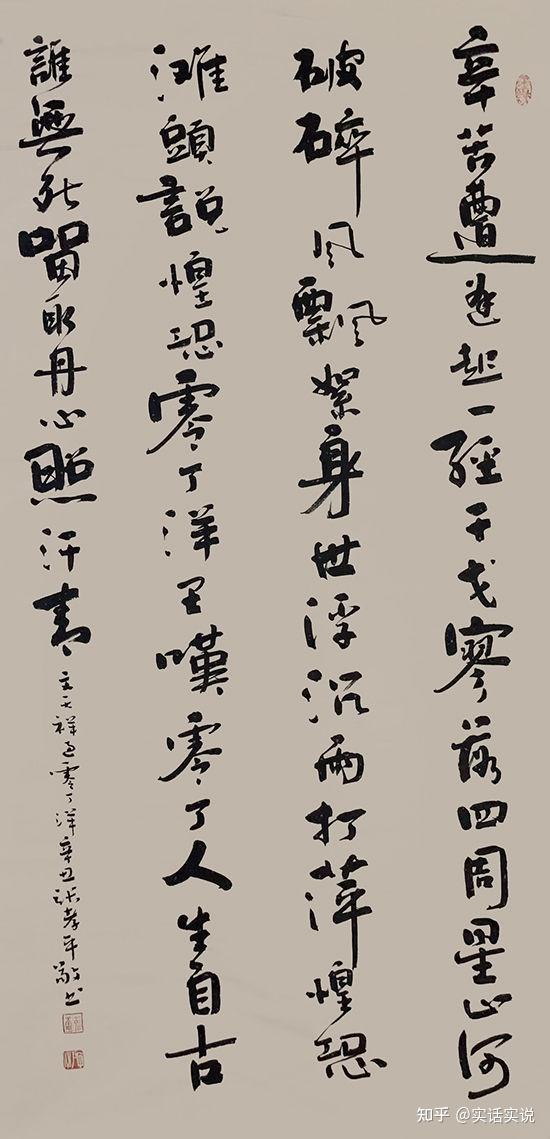 辛苦遭逢起一經干戈寥落四周星山河
破碎风飄絮身世浮沉雨打萍惶恐
灘頭說惶恐零丁洋里嘆零丁人生自古
誰無死留取丹心照汗青
文天祥过零丁洋辛丑张孝平敬书
知乎 @实话实说